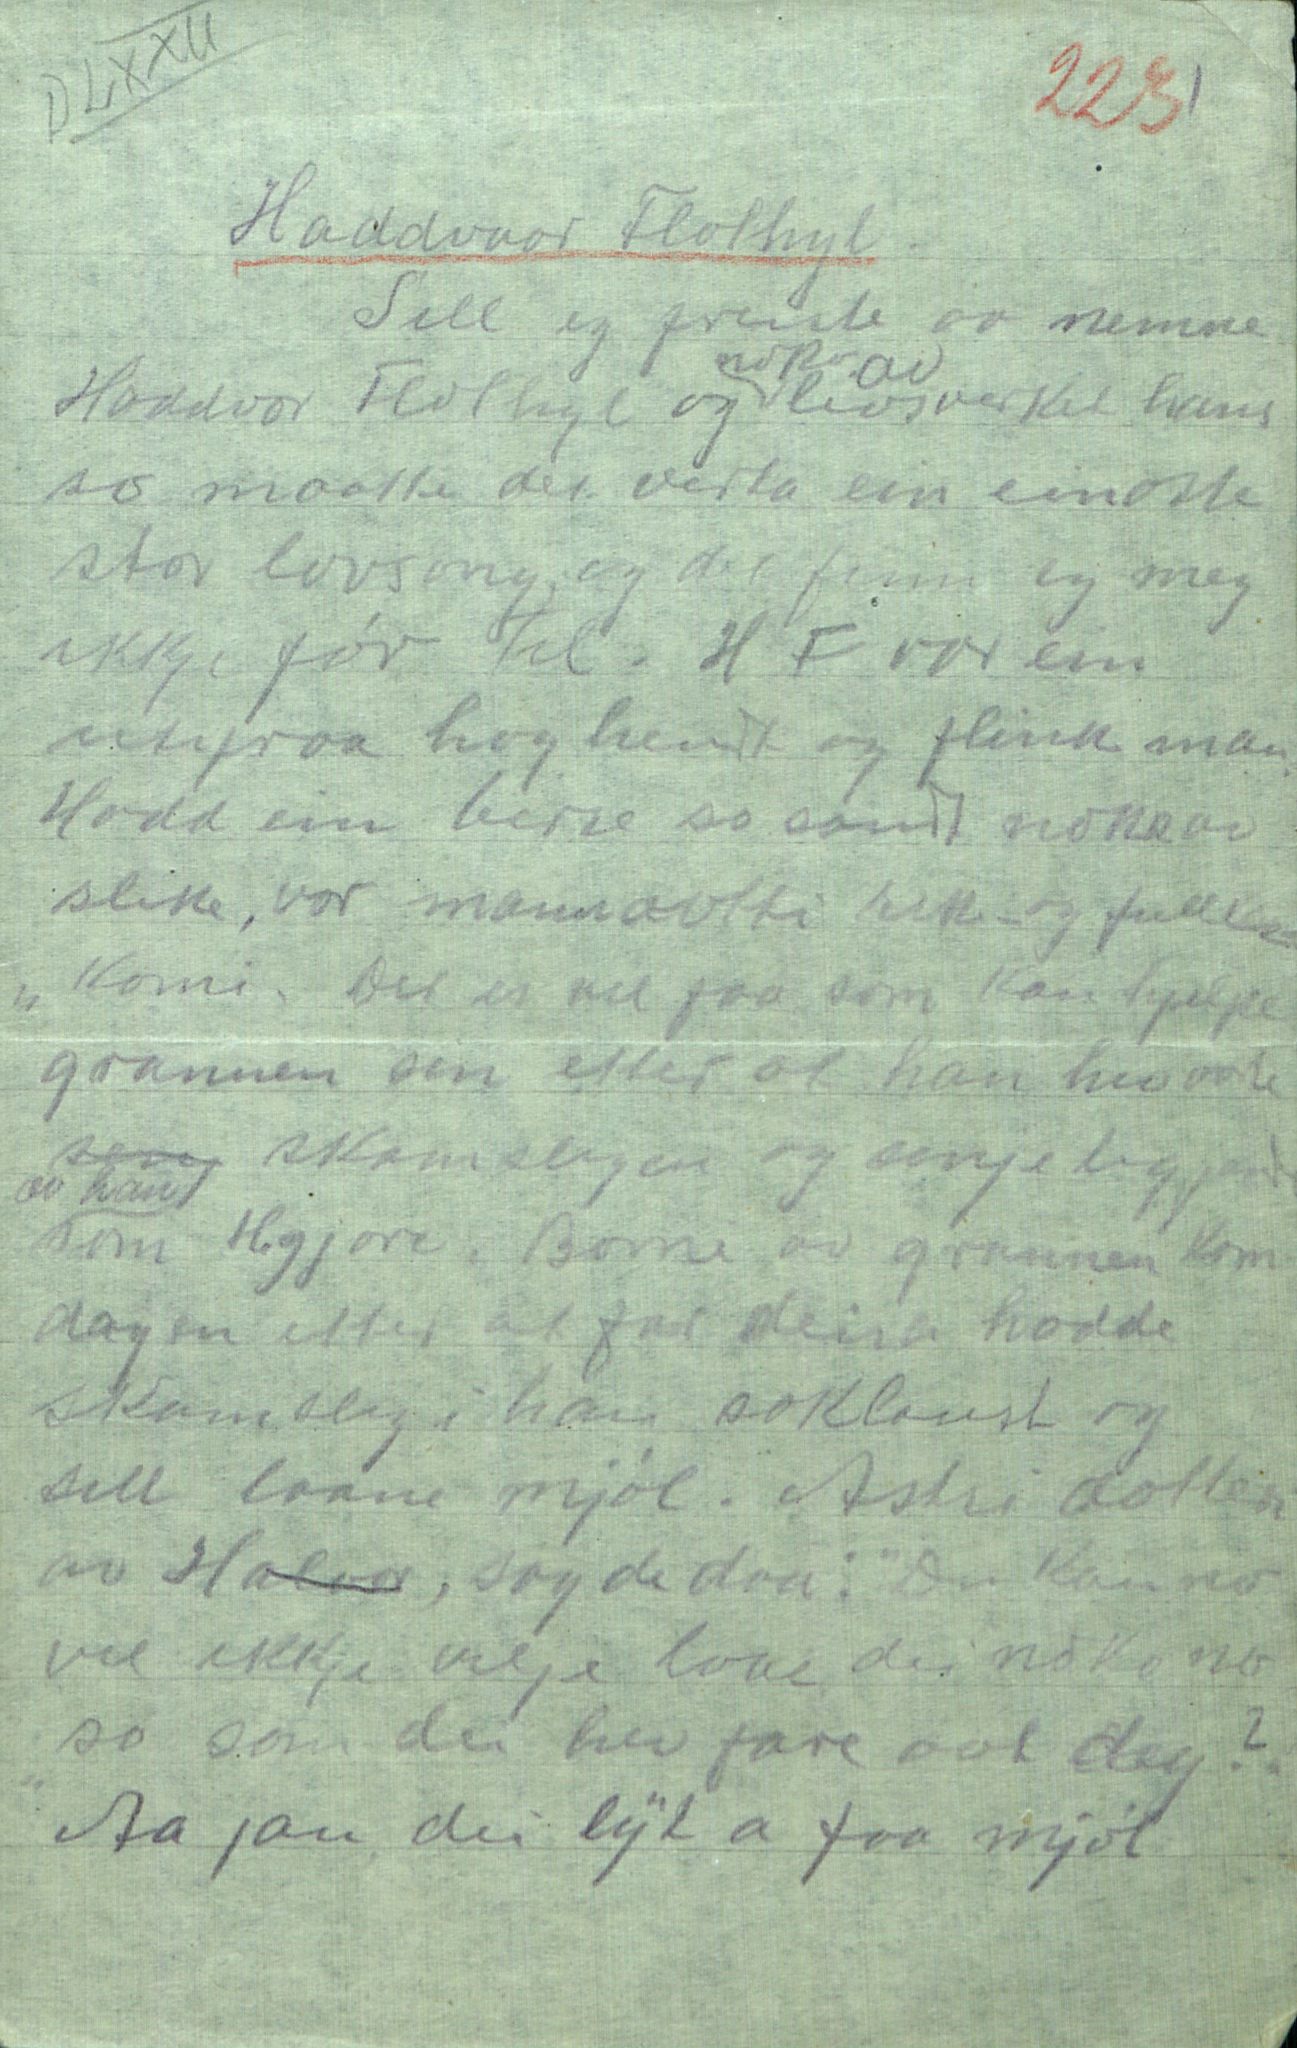 DLXXII
223 1
Haddvaor Flothyl.
Sill eg freiste ao nemne
Haddvor Flothyl og nokro av livsverket hans
so maatte det verta ein eindste
stor lovsong, og det finn eg meg
ikkje før til. H F var ein
utifraa hoghendt og flink man.
Hadd ein berre so sandt noko av
slike, var manna altti rik - og fullkes
"komi. Det er vel faa som kan hjelpe
grannen sen etter at han hev vore
skamslegen og
av han
som H. gjore. Borne av grannen kom
dagen etter at far deira hadde
skamslegi han saklaust og
sill laane mjøl. Astri dotteri
av Halvor, sagde daa: "Du kan no
vel ikkje vilje lone dei noko no
so som dei hev fare aat deg?"
"Aa jau dei lyt a faa mjøl